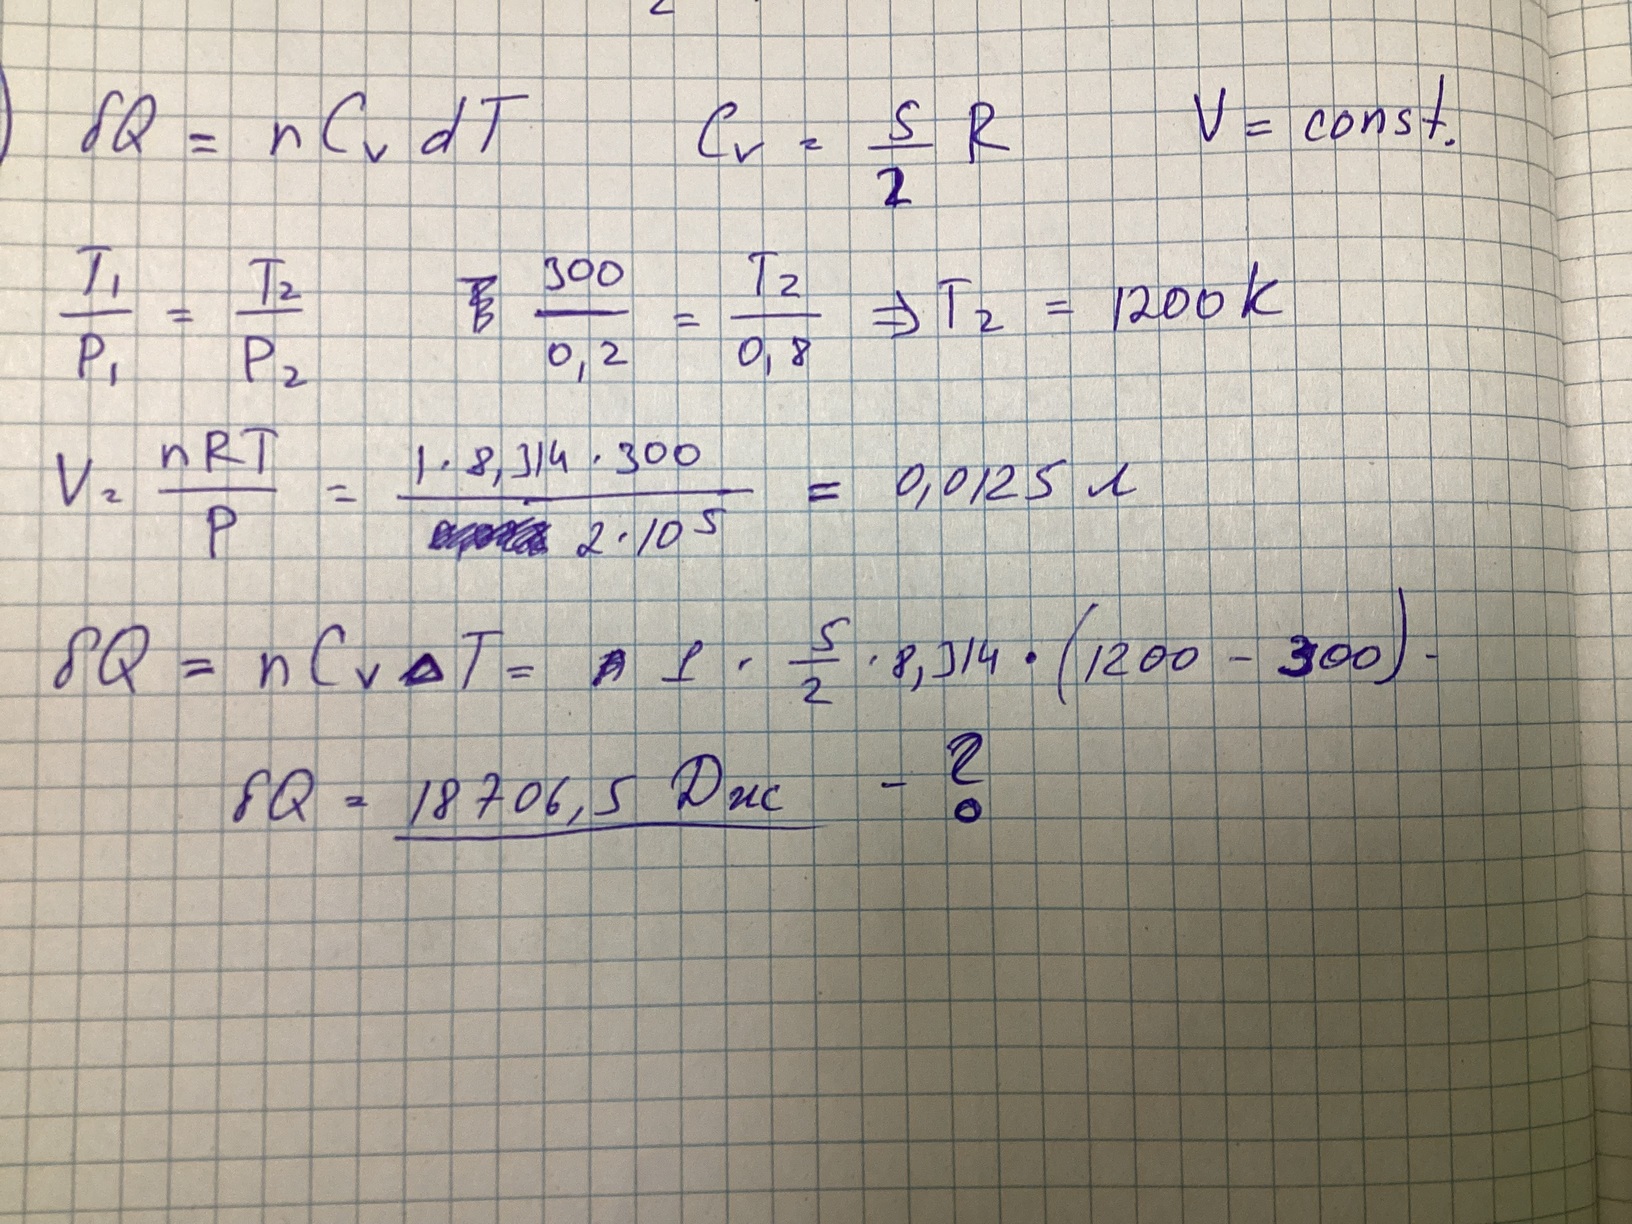 δQ = n Cv dT Cv = 5/2 R V = const.
T₁/P₁ = T₂/P₂ 300/0,2 = T₂/0,8 ⇒ T₂ = 1200 K
V = nRT/P = 1 · 8,314 · 300/2 · 10⁵ = 0,0125 л
δQ = n Cv ΔT = 1 · 5/2 · 8,314 · (1200 - 300) -
δQ = 18706,5 Дж - ?